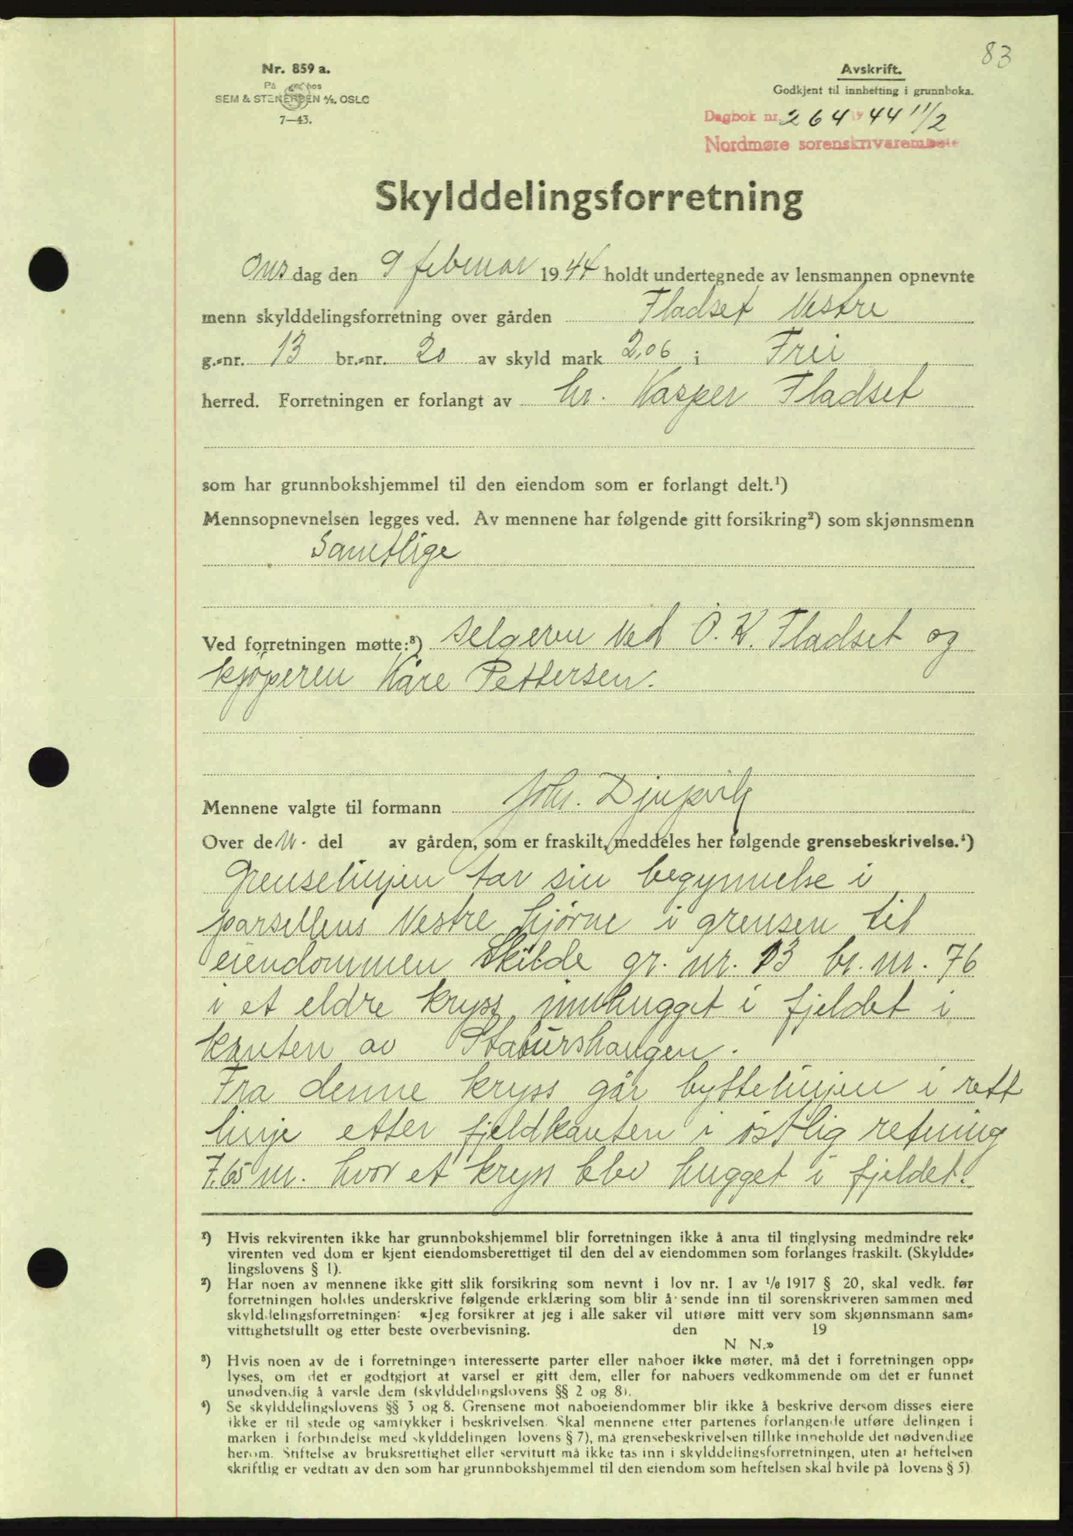 83
Nr. 859 a.
På hos
SEM & STENERSEN A/S, OSLO
7—43.
Avskrift.
Godkjent til innhefting i grunnboka.
Dagbok nr. 264 19 44 11/2
Nordmøre sorenskriverembete
Skylddelingsforretning
Ons dag den 9 februar 1944 holdt undertegnede av lensmannen opnevnte
menn skylddelingsforretning over gården Fladset Vestre
g.-nr. 13 br.-nr. 20 av skyld mark 2,06 i Frei
herred. Forretningen er forlangt av hr. Kasper Fladset
som har grunnbokshjemmel til den eiendom som er forlangt delt.¹)
Mennsopnevnelsen legges ved. Av mennene har følgende gitt forsikring²) som skjønnsmenn
Samtlige
Ved forretningen møtte:³) selgeren ved O. K. Fladset og
kjöperen Kåre Pettersen.
Mennene valgte til formann Joh. Djupvik
Over den del av gården, som er fraskilt, meddeles her følgende grensebeskrivelse.⁴)
Grenselinjen tar sin begynnelse i
parsellens Vestre hjørne i grensen til
eiendommen Skilde gr. nr. 13 br. nr. 76
i et eldre kryss innhugget i fjeldet i
kanten av Staburshaugen.
Fra denne kryss går byttelinjen i rett
linje etter fjeldkanten i östlig retning
7,65 m. hvor et kryss blev hugget i fjeldet.
¹) Hvis rekvirenten ikke har grunnbokshjemmel blir forretningen ikke å anta til tinglysing medmindre rek-
virenten ved dom er kjent eiendomsberettiget til den del av eiendommen som forlanges fraskilt. (Skyldde-
lingslovens § 1).
²) Har noen av mennene ikke gitt slik forsikring som nevnt i lov nr. 1 av 1/6 1917 § 20, skal vedk. før
forretningen holdes underskrive følgende erklæring som blir å sende inn til sorenskriveren sammen med
skylddelingsforretningen: «Jeg forsikrer at jeg i alle saker vil utføre mitt verv som skjønnsmann sam-
vittighetsfullt og etter beste overbevisning. den 19
N. N.»
³) Hvis noen av de i forretningen interesserte parter eller naboer ikke møter, må det i forretningen opp-
lyses, om det er godtgjort at varsel er gitt dem, eller for naboers vedkommende om det er funnet
unødvendig å varsle dem (skylddelingslovens §§ 2 og 8).
⁴) Se skylddelingslovens §§ 3 og 8. Grensene mot naboeiendommer blir ikke å beskrive dersom disses eiere
ikke er til stede og samtykker i beskrivelsen. Skal mennene etter partenes forlangende utføre delingen i
marken i forbindelse med skylddelingen lovens § 7), må grensebeskrivelsen tillike inneholde det nødvendige
herom. Stiftelse av bruksrettighet eller servitutt må ikke tas inn i skylddelingsforretningen, uten at heftelsen
skriftlig er vedtatt av den som har grunnbokshjemmel til den eiendom som heftelsen skal hvile på lovens § 5)